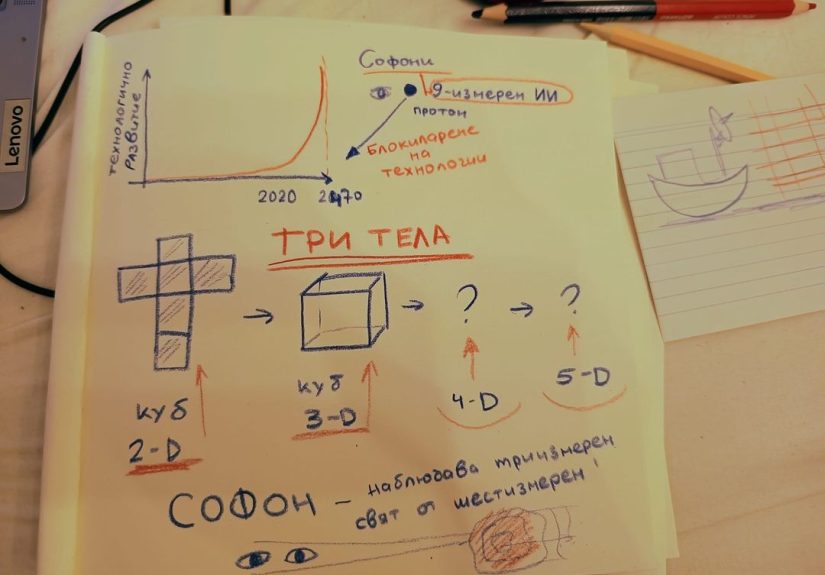 Lenovo
ТЕХНОЛОГИЧНО
РАЗВИТИЕ
2020
Софони
9-измерен ИИ
протон
БЛОКИРАНЕ
НА
ТЕХНОЛОГИИ
ТРИ ТЕЛА
?
?
куб
2-D
куб
3-D
4-D
5-D
СОФОН – наблюдава триизмерен
свят от шестизмерен!